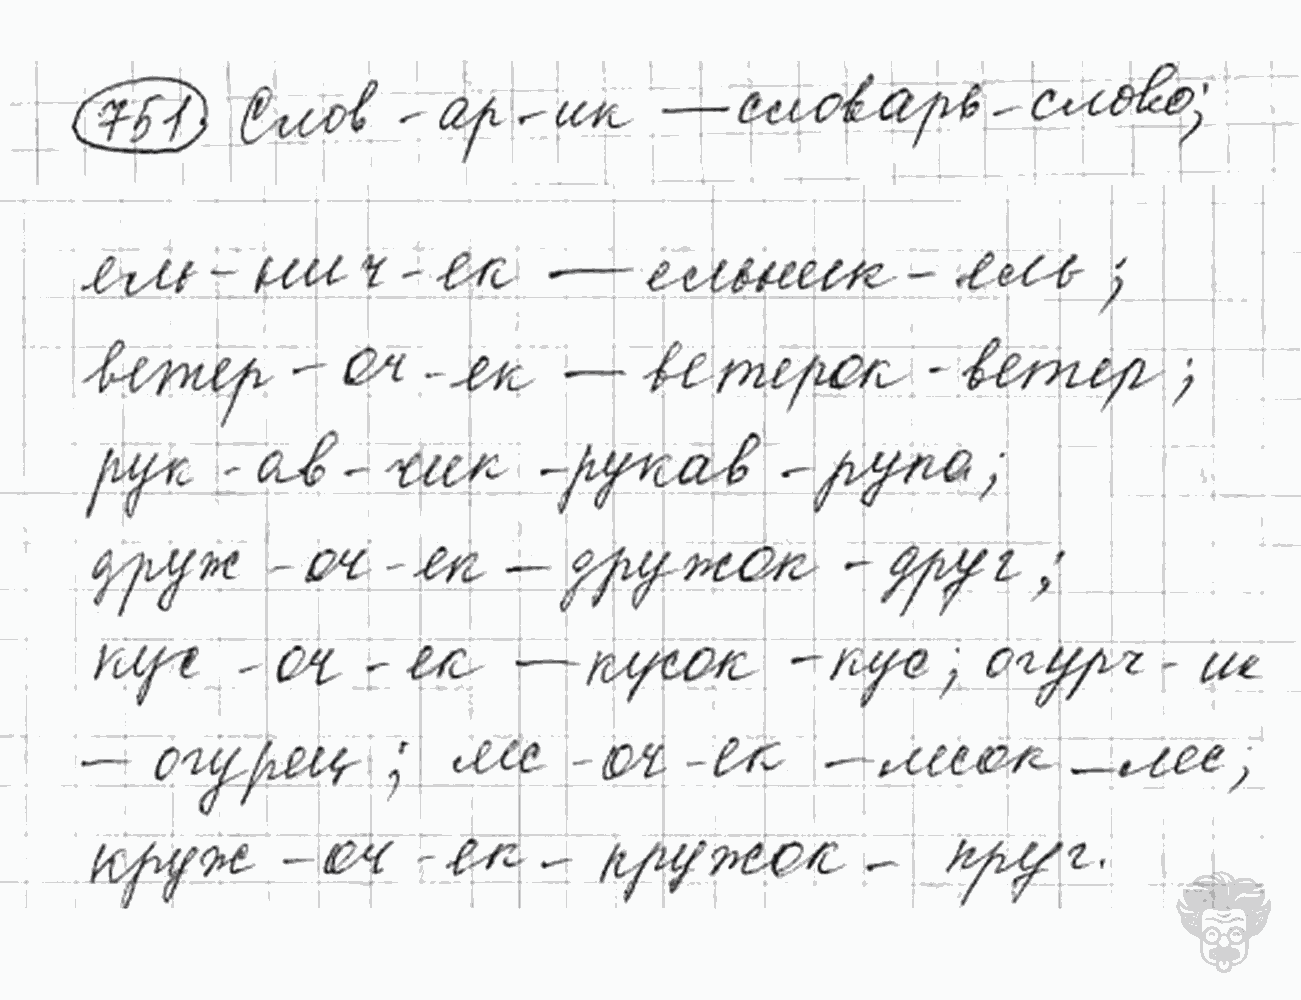 751. Слов - ар - ик — словарь - слово;
ель - нич - ек — ельник - ель;
ветер - оч - ек — ветерок - ветер;
рук - ав - чик - рукав - рука;
друж - оч - ек — дружок - друг;
кус - оч - ек — кусок - кус; огурч - ик
— огурец; лес - оч - ек — лесок - лес;
круж - оч - ек - кружок - круг.